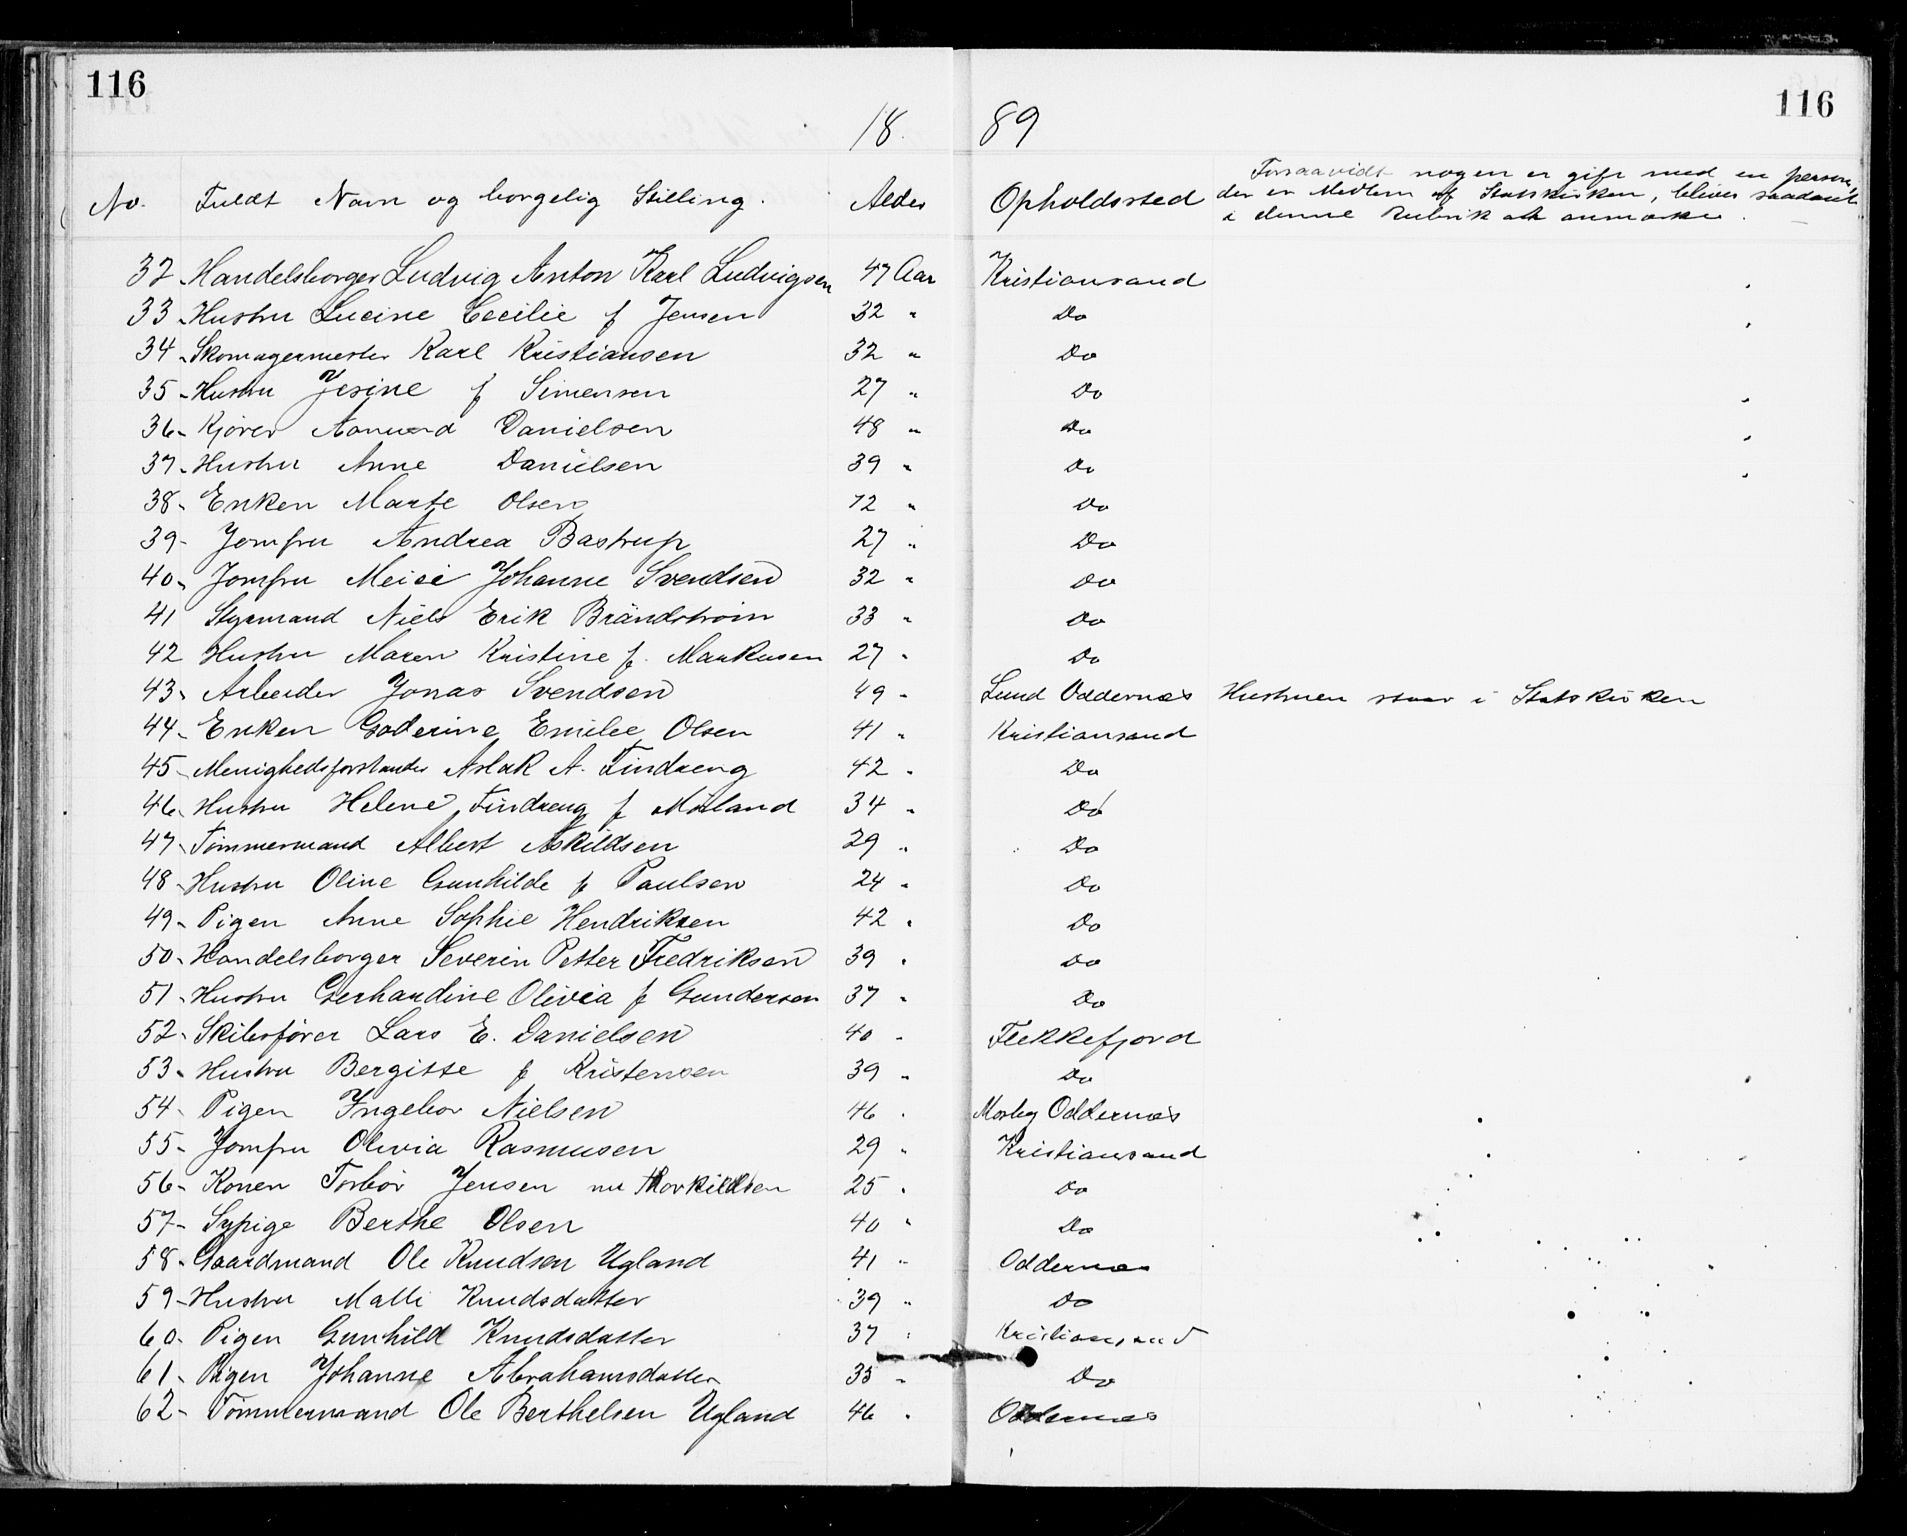 116
116
18. 89
No. Fuldt Navn og borgelig Stilling. Alder Opholdssted Forsaavidt nogen er gift med en person,
der er Medlem af Statskirken, bliver saadant
i denne Rubrik at anmærke.
32 Handelsborger Ludvig Anton Karl Ludvigsen 47 Aar Kristiansand
33 Hustru Lucine Cecilie f Jensen 32 " Do
34 Skomagermester Karl Kristiansen 32 " Do
35 Hustru Jesine f Simensen 27 " Do
36 Kjører Aanund Danielsen 48 " Do
37 Hustru Anne Danielsen 39 " Do
38 Enken Marte Olsen 72 " Do
39 Jomfru Andrea Bastrup 27 " Do
40 Jomfru Meiei Johanne Svendsen 32 " Do
41 Styrmand Niels Erik Brändstrøm 33 " Do
42 Hustru Maren Kristine f. Markusen 27 " Do
43 Arbeider Jonas Svendsen 49 " Lund Oddernæs Hustruen staar i Statskirken
44 Enken Goderine Emilie Olsen 41 " Kristiansand
45 Menighedsforstander Aslak A. Findreng 42 " Do
46 Hustru Helene Findreng f Møland 34 " Do
47 Tømmermand Albert Askildsen 29 " Do
48 Hustru Oline Gunhilde f Paulsen 24 " Do
49 Pigen Anne Sophie Hendriksen 42 " Do
50 Handelsborger Severin Petter Fredriksen 39 " Do
51 Hustru Gerhardine Olivia f Gundersen 37 " Do
52 Skibsfører Lars E. Danielsen 40 " Flekkefjord
53 Hustru Bergitte f Kristensen 39 " Do
54 Pigen Ingebor Nielsen 46 " Mosby Oddernæs
55 Jomfru Olivia Rasmusen 29 " Kristiansand
56 Konen Torbør Jensen nu Thorkildsen 25 " Do
57 Sypige Berthe Olsen 40 " Do
58 Gaardmand Ole Knudsen Ugland 41 " Oddernæs
59 Hustru Malli Knudsdatter 39 " Do
60 Pigen Gunhild Knudsdatter 37 " Kristiansand
61 Pigen Johanne Abrahamsdatter 35 " Do
62 Tømmermand Ole Berthelsen Ugland 46 " Oddernæs